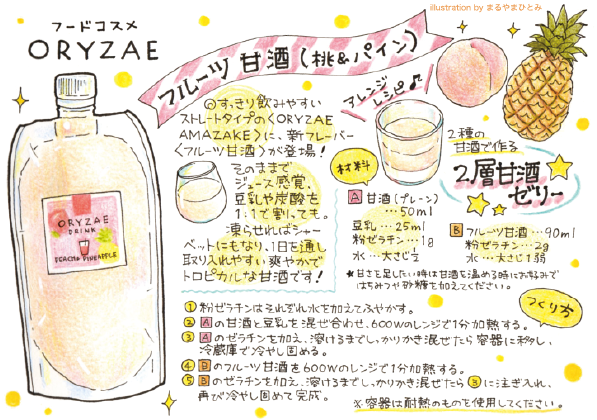 illustration by まるやまひとみ
フードコスメ
ORYZAE
フルーツ 甘酒(桃&パイン)
アレンジ
レシピ♪
◎すっきり飲みやすい
ストレートタイプの〈ORYZAE
AMAZAKE〉に、新フレーバー
〈フルーツ甘酒〉が登場!
そのままで
ジュース感覚、
豆乳や炭酸を
1:1で割にても。
凍らせればシャー
ベットにもなり、1日を通し
取り入れやすい爽やかで
トロピカルな甘酒です!
ORYZAE
DRINK
PEACH & PINEAPPLE
2種の
甘酒で作る
2層甘酒
ゼリー
材料
A 甘酒(プレーン)
…50ml
豆乳…25ml
粉ゼラチン…1g
水…大さじ½
B フルーツ甘酒…90ml
粉ゼラチン…2g
水…大さじ1弱
*甘さを足したい時は甘酒を温める時にお好みで
はちみつや砂糖を加えてください。
つくり方
① 粉ゼラチンはそれぞれ水を加えてふやかす。
② Aの甘酒と豆乳を混ぜ合わせ、600Wのレンジで1分加熱する。
③ Aのゼラチンを加え、溶けるまでしっかりかき混ぜたら容器に移し、
冷蔵庫で冷やし固める。
④ Bのフルーツ甘酒を600Wのレンジで1分加熱する。
⑤ Bのゼラチンを加え、溶けるまでしっかりかき混ぜたら③に注ぎ入れ、
再び冷やし固めて完成。
※容器は耐熱のものを使用してください。